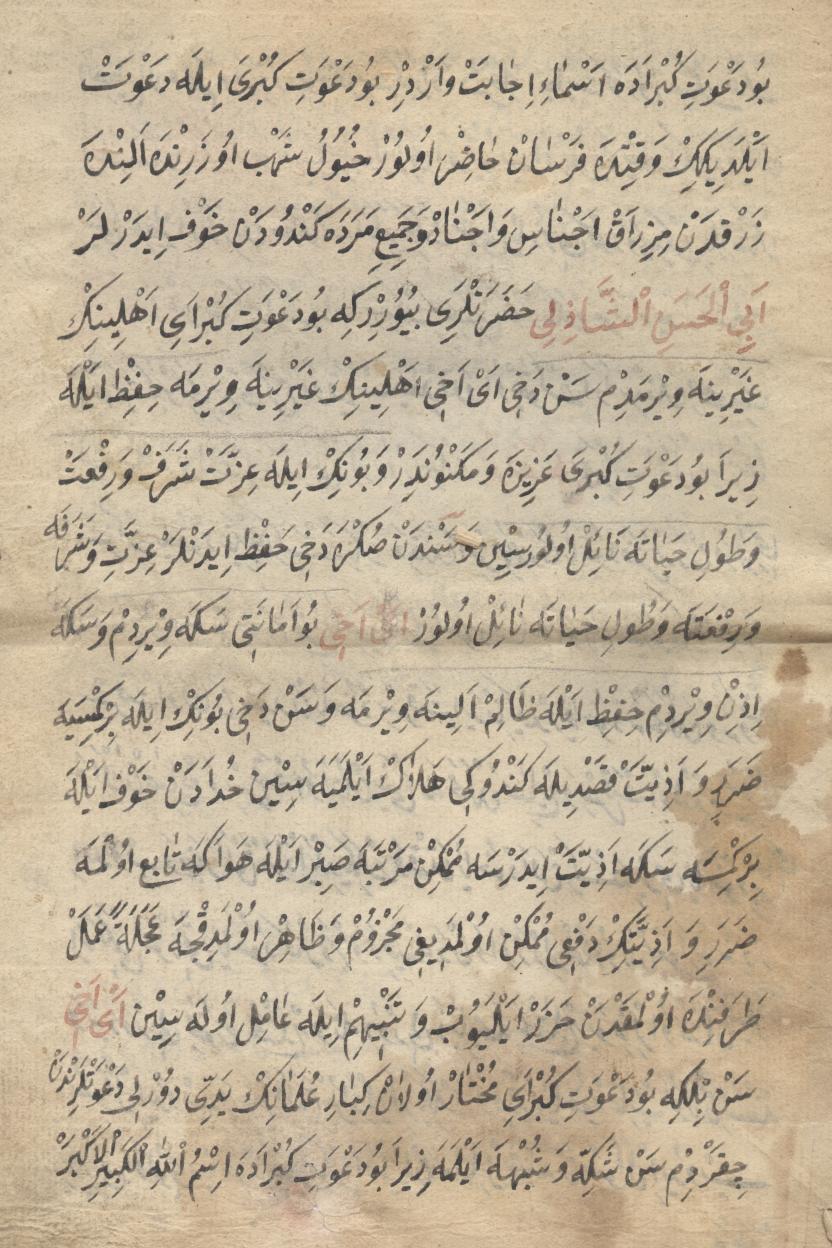 بُودَعْوَتِ كُبْرَادَه اَسْمَاءِ اِجَابَتْ وَارْدِرْ بُودَعْوَتِ كُبْرَى اِيلَه دَعْوَتْ
اَيْلَدِيكِكْ وَقِتْدَه فَرْسَانْ حَاضِرْ اُولُورْ خُيُولُ شُهْب اُوزَرِنْدَه اَلِنْدَه
زَرْقدَنْ مِزْرَاقْ اَجْنَاسِ وَاَجْنَادْ وَجَمِيعِ مَرَدَه كَنْدُودَنْ خَوْف اِيدَرْلَرْ
اَبِي الْحَسَنِ الشَّاذِلِي حَضَرَتْلَرِى بُيُورُرْكِه بُودَعْوَتِ كُبْرَايِ اَهْلِينِكْ
غَيْرِينَه وِيْرمَدِمْ سَنْ دَخِى اَىْ اَخِى اَهْلِينِكْ غَيْرِينَه وِيْرمَه حِفِظْ اَيْلَه
زِيرَا بُودَعْوَتِ كُبْرَى عَزِيزَه وَمَكْنُونَدِرْ وَبُونِكْ اِيلَه عِزَّتْ شَرَفْ وَرِفْعَتْ
وَطُولِ حَيَاتَه نَائِلْ اُولُورْسِيْن وَسَنْدَنْ صُكْرَه دَخِى حِفْظ اِيدَنْلَرْ عِزَّتِ وَشَرَفَه
وَرِفْعَتَه وَطُولِ حَيَاتَه نَائِلْ اُولُورْ اَىْ اَخِى بُواَمَانَتِى سَكَه وِيْردِمْ وَسَكَه
اِذِنْ وِيْردِمْ حِفِظْ اَيْلَه ظَالِمْ اَلِينَه وِيْرمَه وَسَنْ دَخِى بُونِكْ اِيلَه بِرْكِمْسَيَه
ضَرَرِ وَ اَذِيَّتْ قَصْدِيلَه كَنْدُوكِى هَلَاكْ اَيْلَمَيَه سِيْن خُدَادَنْ خَوْف اَيْلَه
بِرْكِمْسَه سَكَه اَذِيَّتْ اِيدَرْسَه مُمْكِنْ مَرْتَبَه صَبِرْ اَيْلَه هَوَاكَه تَابِع اُولْمَه
ضَرَرِ وَ اَذِيَّتِكْ دَفْعِى مُمْكِنْ اُولْمَدِيغِى مَجْزُومْ وَظَاهِرْ اُولْمَدِقْجَه عَجَلَةً عَمَلْ
طَرَفِنْدَه اُولْمَقْدَنْ حَزَرْ اَيْلَيُوبْ وَ تَنْبِيهِمْ اِيلَه عَامِلْ اُولَه سِيْن اَىْ اَخِى
سَنْ بِلْكِه بُودَعْوَتِ كُبْرَايِ مُخْتَارْ اُولَانْ كِبَارِ عُلَمَانِكْ يَدِّى دُوْرْلِى دَعْوَتْلَرِنْدَنْ
چِقَرْدِمْ سَنْ شَكّه وَشُبْهَه اَيْلَمَه زِيرَا بُودَعْوَتِ كُبْرَادَه اِسْمُ اللّٰهِ الْكَبِيْرِ الْاَكْبَرْ